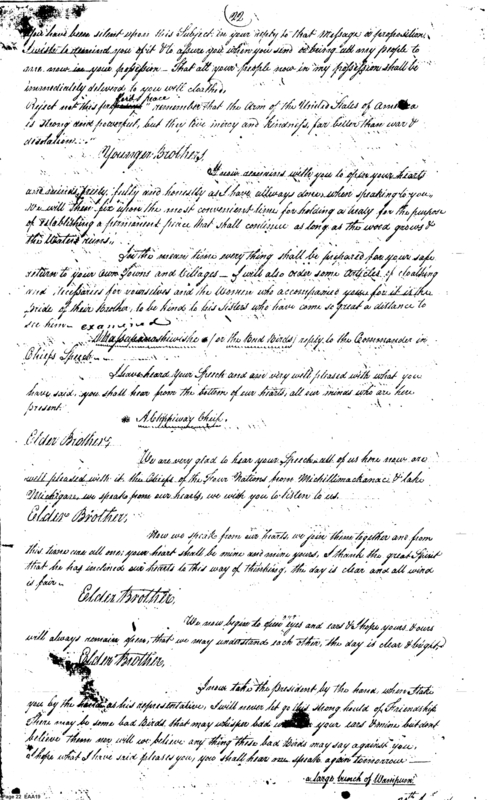 22
you have been silent upon this Subject in your reply to that Message or proposition
I wish to remind you of it & to assure you when you send or bring all my people to
are now in your possession — That all your people now in my possession shall be
immediately delivered to you well cloathed.
Reject not this proffered peace remember that the Arm of the United States of America
is strong and powerful, but they love mercy and kindness, far better than war &
desolation. —
Younger Brothers!
It now remains with you to open your hearts
and minds freely, fully and honestly as I have allways done when speaking to you
We will then fix upon the most convenient time for holding a treaty for the purpose
of establishing a permanent peace that shall continue as long as the wood grows &
the Waters runs. —
In the mean time every thing shall be prepared for your safe
return to your own Towns and Villages — I will also order some articles of cloathing
and for yourselves and the Women who accompanied you for it is the
pride of their Brother, to be kind to his Sisters who have come so great a distance to
see him — examined
(or the Bad Birds) reply to the Commander in
Chiefs Speech —
I have heard Your Speech and are very well pleased with what you
have said. you shall hear from the bottom of our hearts, all our minds who are here
present.
* A Chippiway Chief.
Elder Brothers,
We are very glad to hear your Speech all of us here now are
well pleased with it. the Chiefs of the Four Nations from Michillimackanac & lake
Michigan we speak from our hearts, we wish you to listen to us.
Elder Brother,
Now we speak from our hearts, we join them together and from
this time was all one; your heart shall be mine and mine yours. I thank the great Spirit
that he has inclined our hearts to this way of thinking, the day is clear and all wind
is fair —
Elder Brother,
We now begin to open eyes and ears & I hope yours & ours
will always remain open, that we may understand each other, the day is clear & bright —
Elder Brother,
I now take the President by the hand when I take
you by the hand as his representative, I will never let go this strong hould of Friendship
There may be some bad Birds that may whisper bad in your ears & mine but dont
believe them nor will we believe any thing these bad Birds may say against you.
I hope what I have said pleases you, you shall hear me speak again tomorrow —
a large bunch of Wampum
Page 22 EAA18